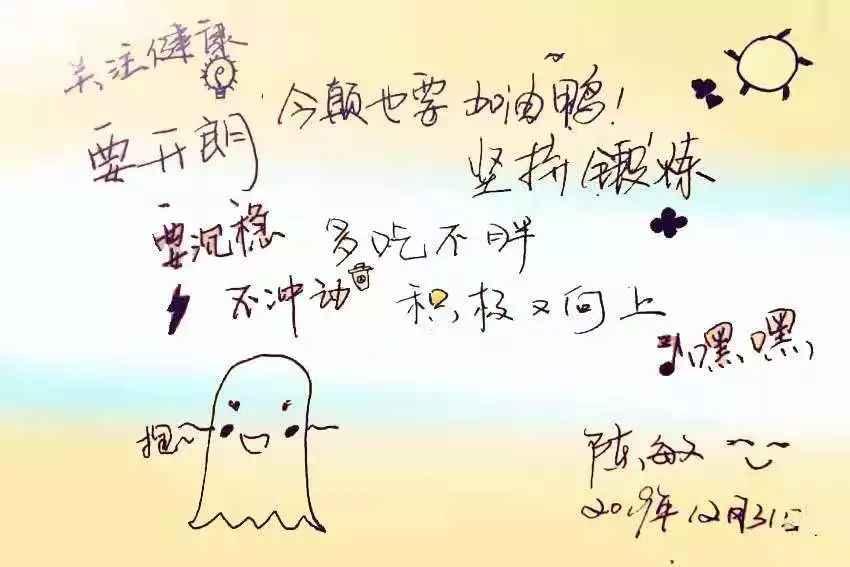 关注健康
今颠也要加油鸭！
要开朗
坚持锻炼
要沉稳
多吃不胖
不冲动
积极又向上
嘿,嘿,
陈敏
2019年12月31日